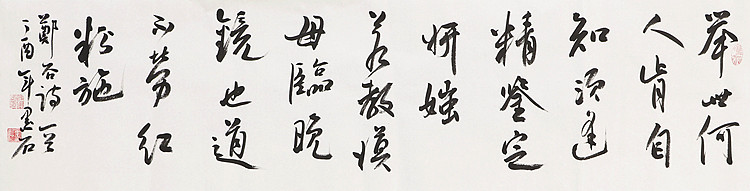 举世何
人肯自
知须逢
精鉴定
妍媸
若教嫫
母臨晚
鏡也道
不劳红
粉施
鄭谷詩一首
丁酉年墨石